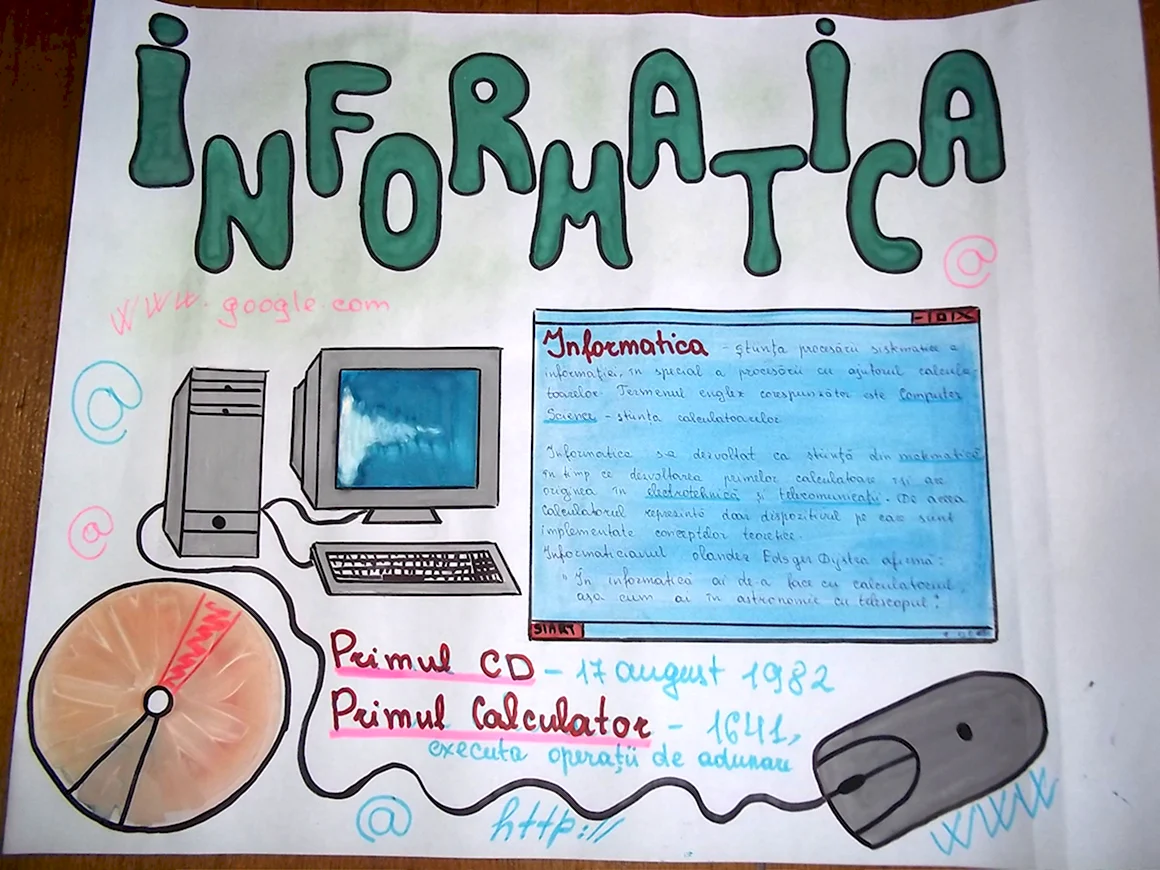 iNFORMATiCA
@
www.google.com
@
@
- □ X
Informatica - știința procesării sistematice a
informației, în special a procesării cu ajutorul calcula-
toarelor. Termenul englez corespunzător este Computer
Science - știința calculatoarelor
Informatica s-a dezvoltat ca știință din matematică
în timp ce dezvoltarea primelor calculatoare își are
originea în electrotehnică și telecomunicații. De aceea
calculatorul reprezintă doar dispozitivul pe care sunt
implementate conceptelor teoretice.
Informaticianul olandez Edsger Dijstra afirmă:
"În informatică ai de-a face cu calculatorul,
așa cum ai în astronomie cu telescopul".
START
Primul CD - 17 august 1982
Primul Calculator - 1641,
executa operații de adunare
@
http://
www